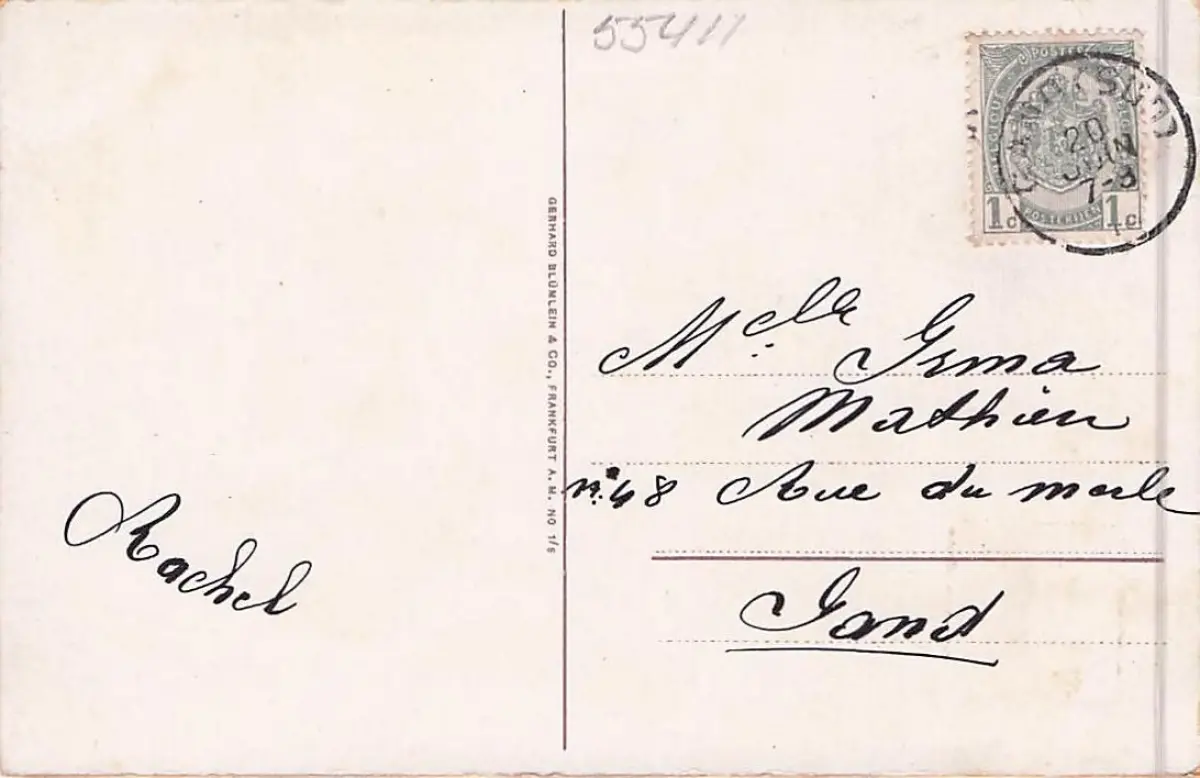 55411
POSTES
1c
POSTERIJEN
1c
20
JUIN
7-8
GERHARD BLÜMLEIN & CO., FRANKFURT A. M. NO 1/6
Melle Irma
Mathieu
No 48 Rue du merle
Gand
Rachel